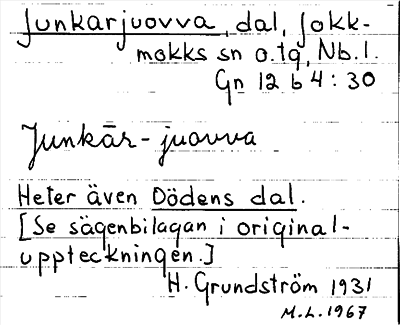 Junkarjuovva, dal, Jokk-
mokks sn o. tg, Nb. l.
Gn 12 b 4 : 30
Junkār - juovva
Heter även Dödens dal.
[Se sägenbilagan i original-
uppteckningen.]
H. Grundström 1931
M.L. 1967